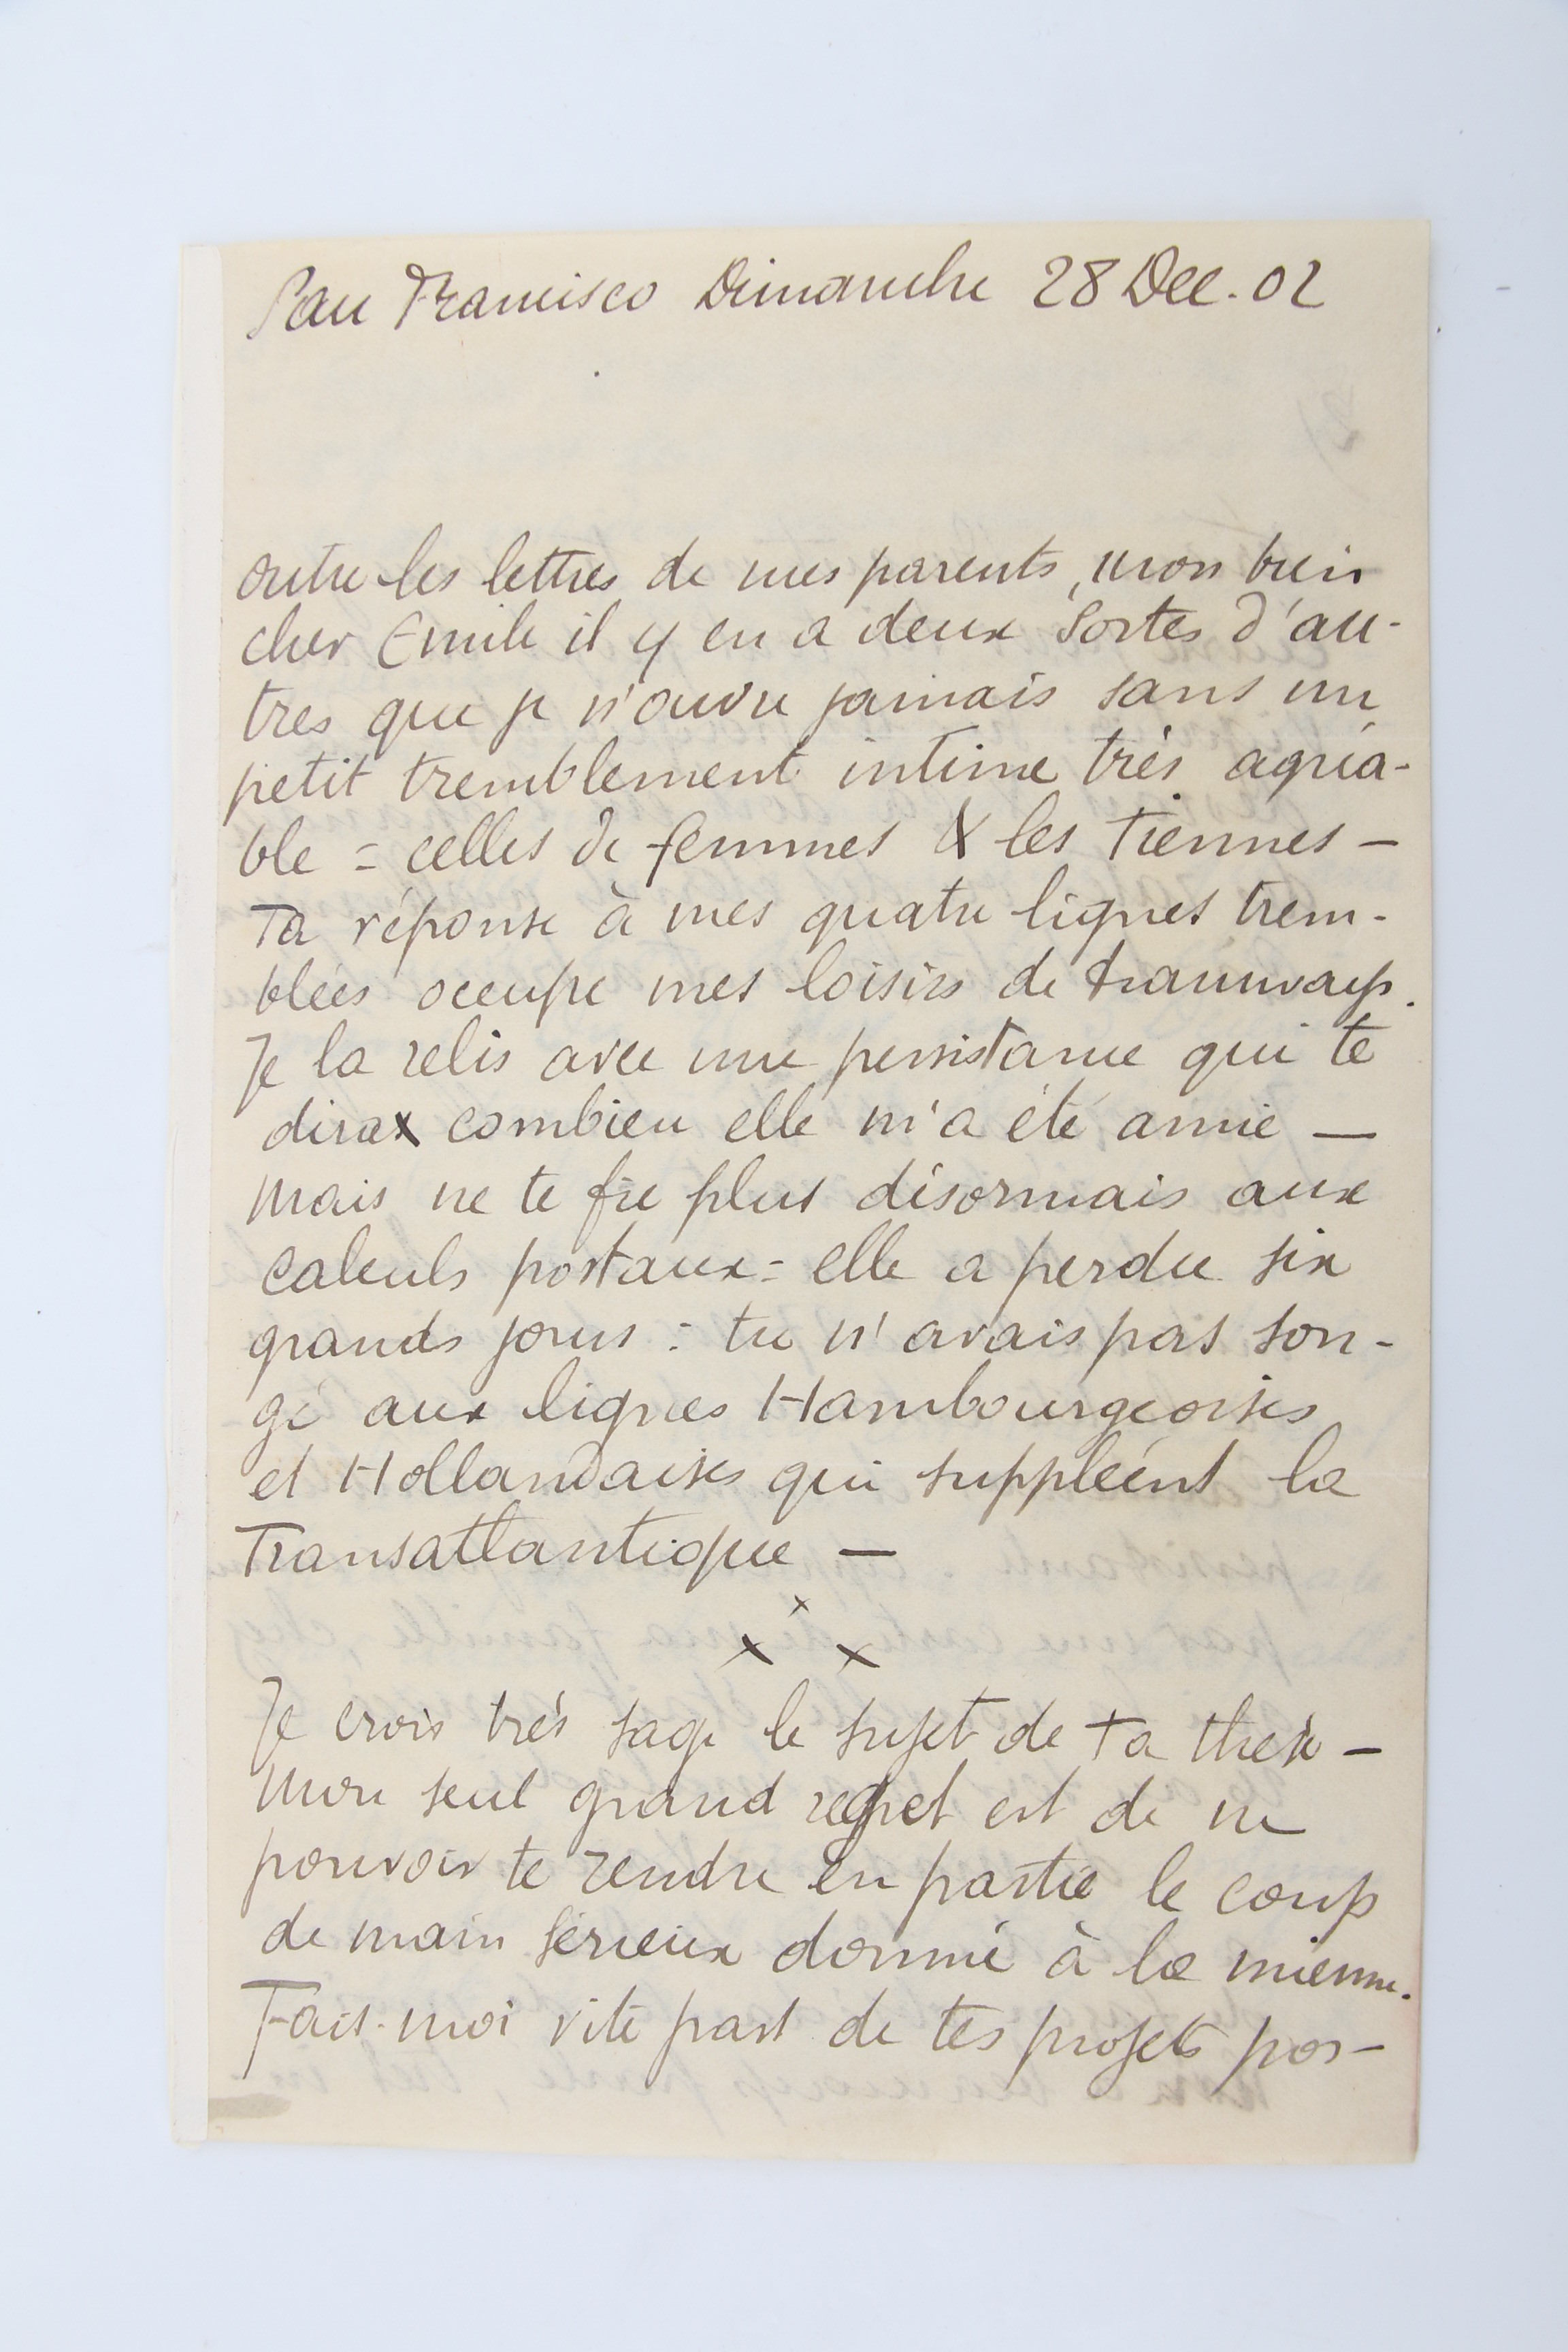 San Francisco Dimanche 28 Dec. 02
outre les lettres de mes parents, mon bien
cher Emile il y en a deux sortes d'au-
tres que je n'ouvre jamais sans un
petit tremblement intime très agréa-
ble = celles de femmes & les tiennes —
Ta réponse à mes quatre lignes trem-
blées occupe mes loisirs de tramways.
Je la relis avec une persistance qui te
dira combien elle m'a été amie —
Mais ne te fie plus désormais aux
calculs postaux = elle a perdu six
grands jours : tu n'avais pas son-
gé aux lignes Hambourgeoises
et Hollandaises qui suppléent la
Transatlantique —
x
x x
Je crois très sage le sujet de ta thèse —
Mon seul grand regret est de ne
pouvoir te rendre en partie le coup
de main sérieux donné à la mienne.
Fais-moi vite part de tes projets pos-